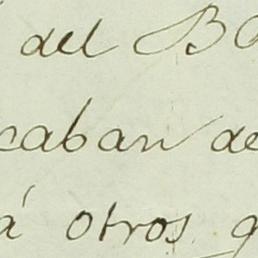 del B
caban de
á otros